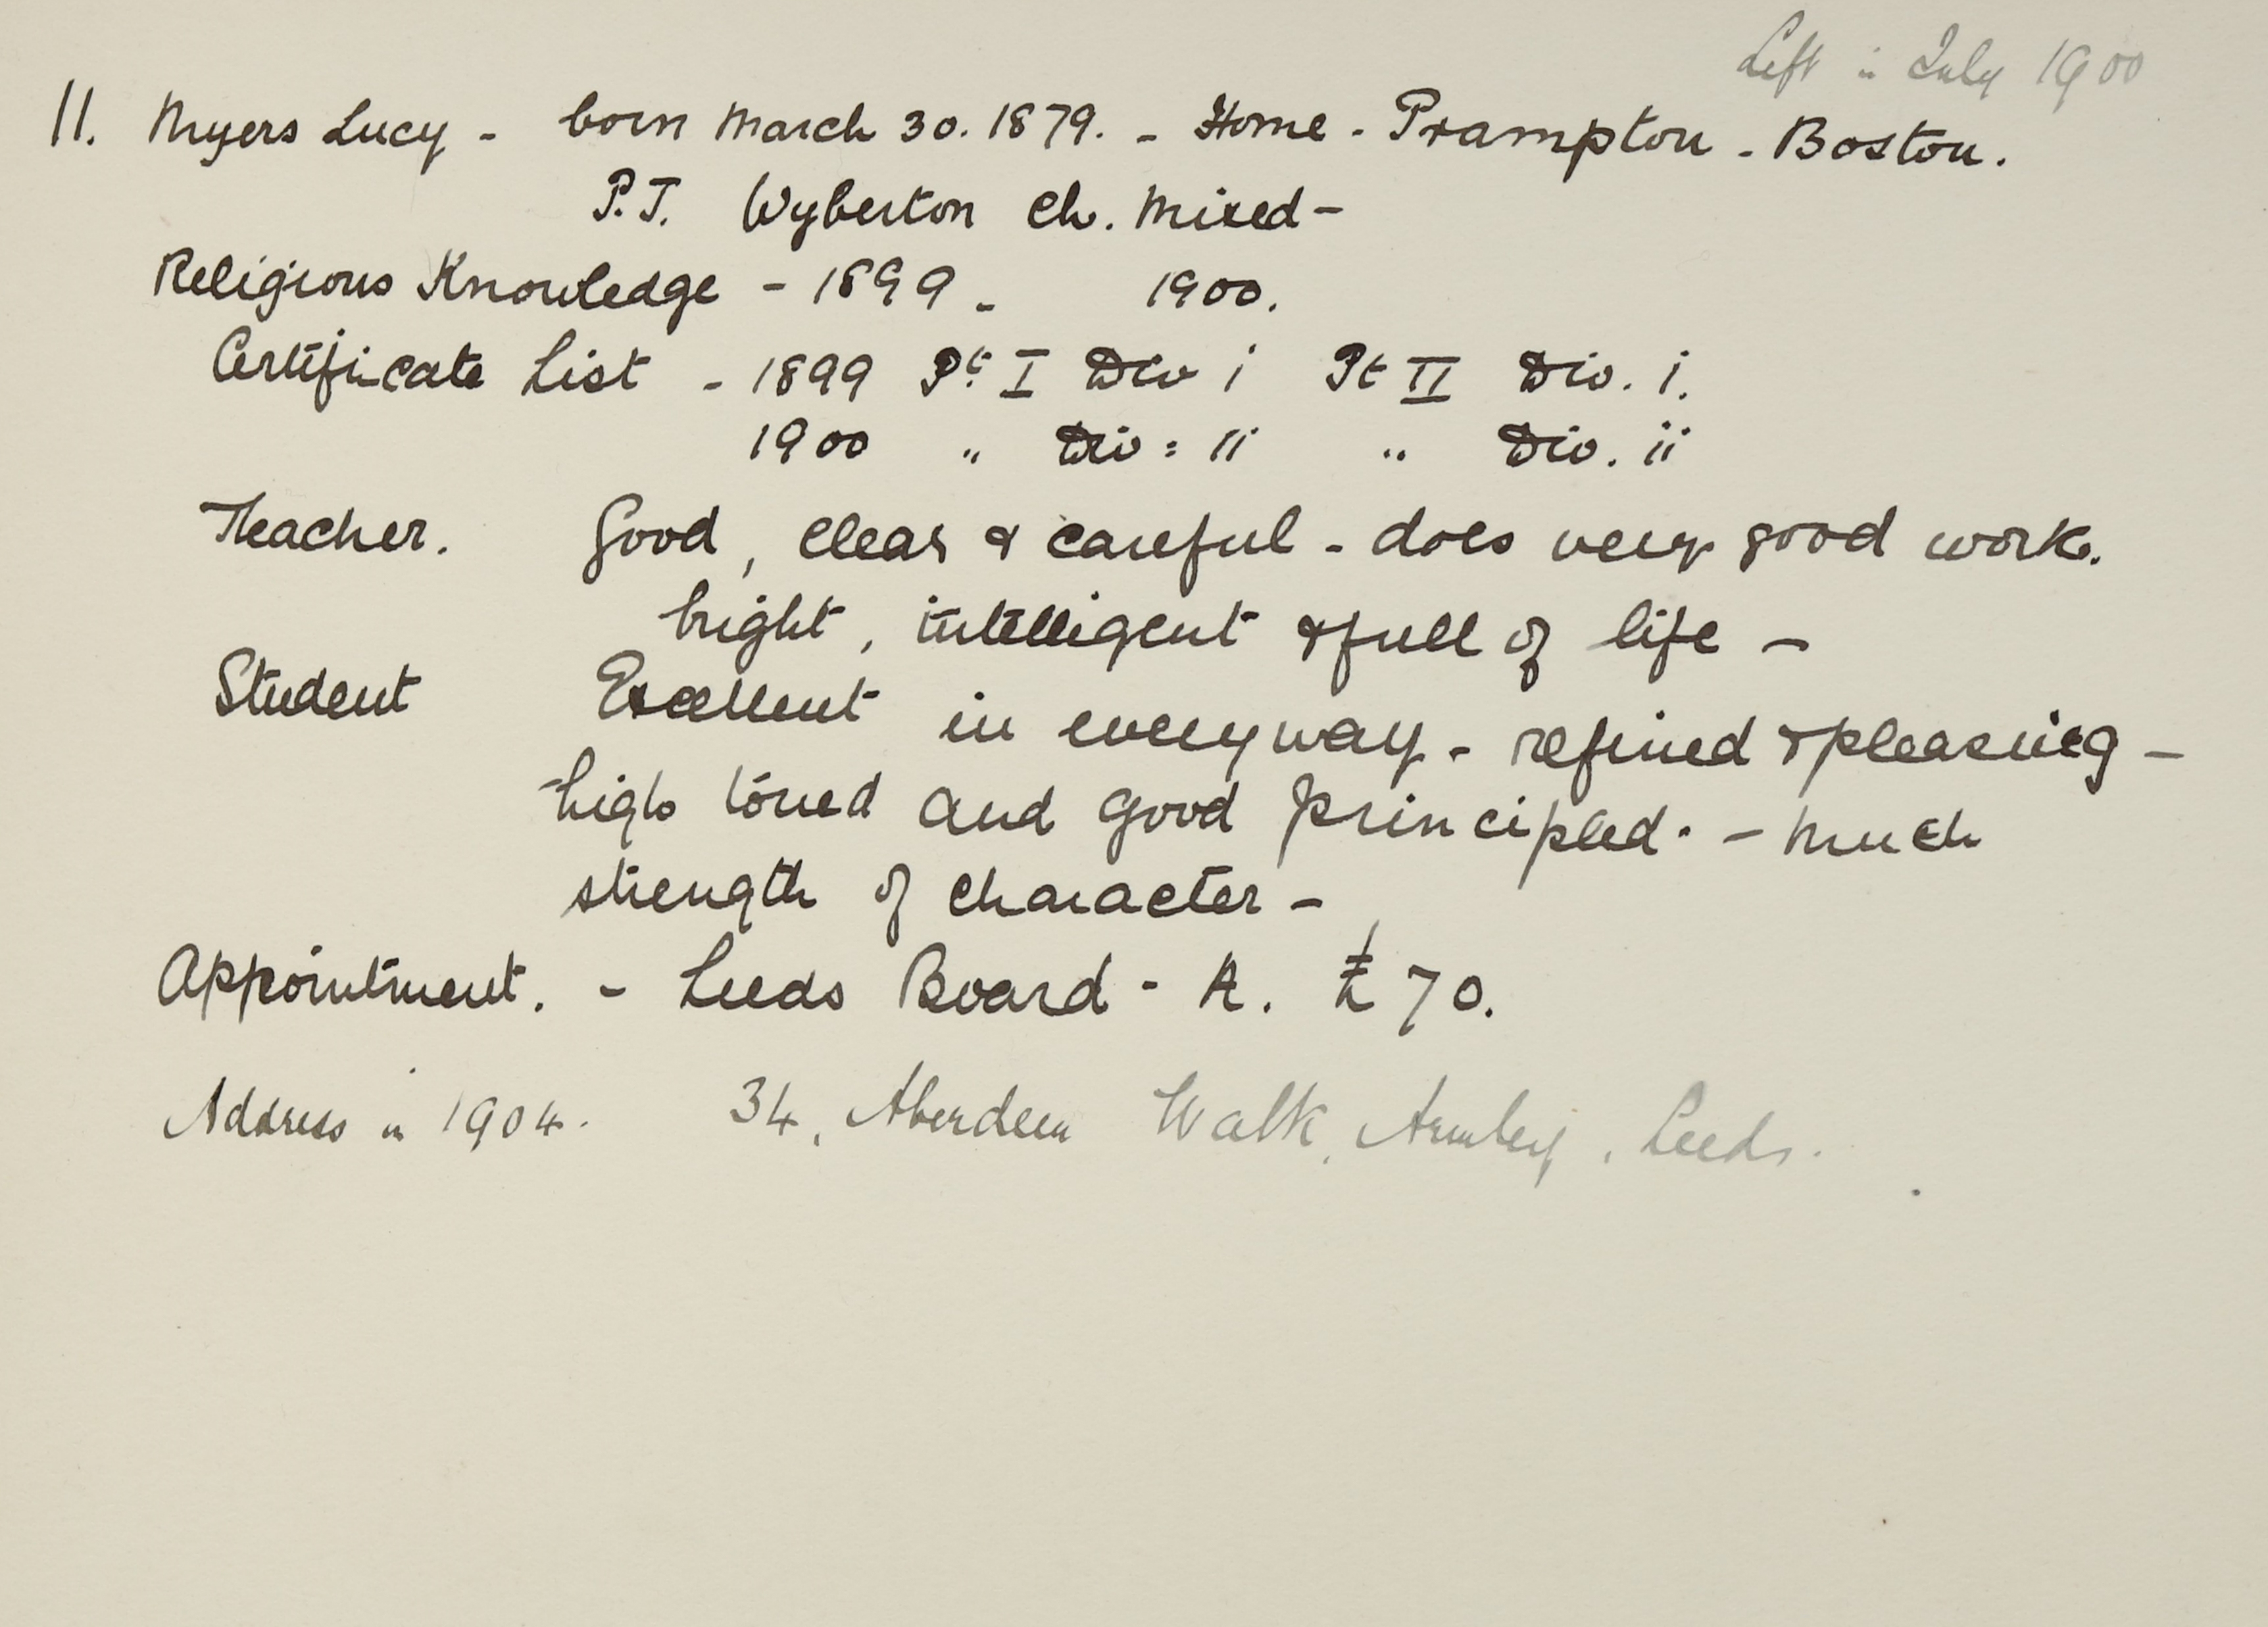 Left in July 1900
11. Myers Lucy - born March 30. 1879. - Home - Frampton - Boston.
P.T. Wyberton Ch. Mixed -
Religious Knowledge - 1899 - 1900.
Certificate List - 1899 Pt I Div i Pt II Div. i.
1900 " Div: ii " Div. ii
Teacher. Good, clear & careful - does very good work.
bright, intelligent & full of life -
Student Excellent in every way - refined & pleasing -
high toned and good principled. - Much
strength of character -
Appointment. - Leeds Board - A. £70.
Address in 1904. 34, Aberdeen Walk, Armley, Leeds.